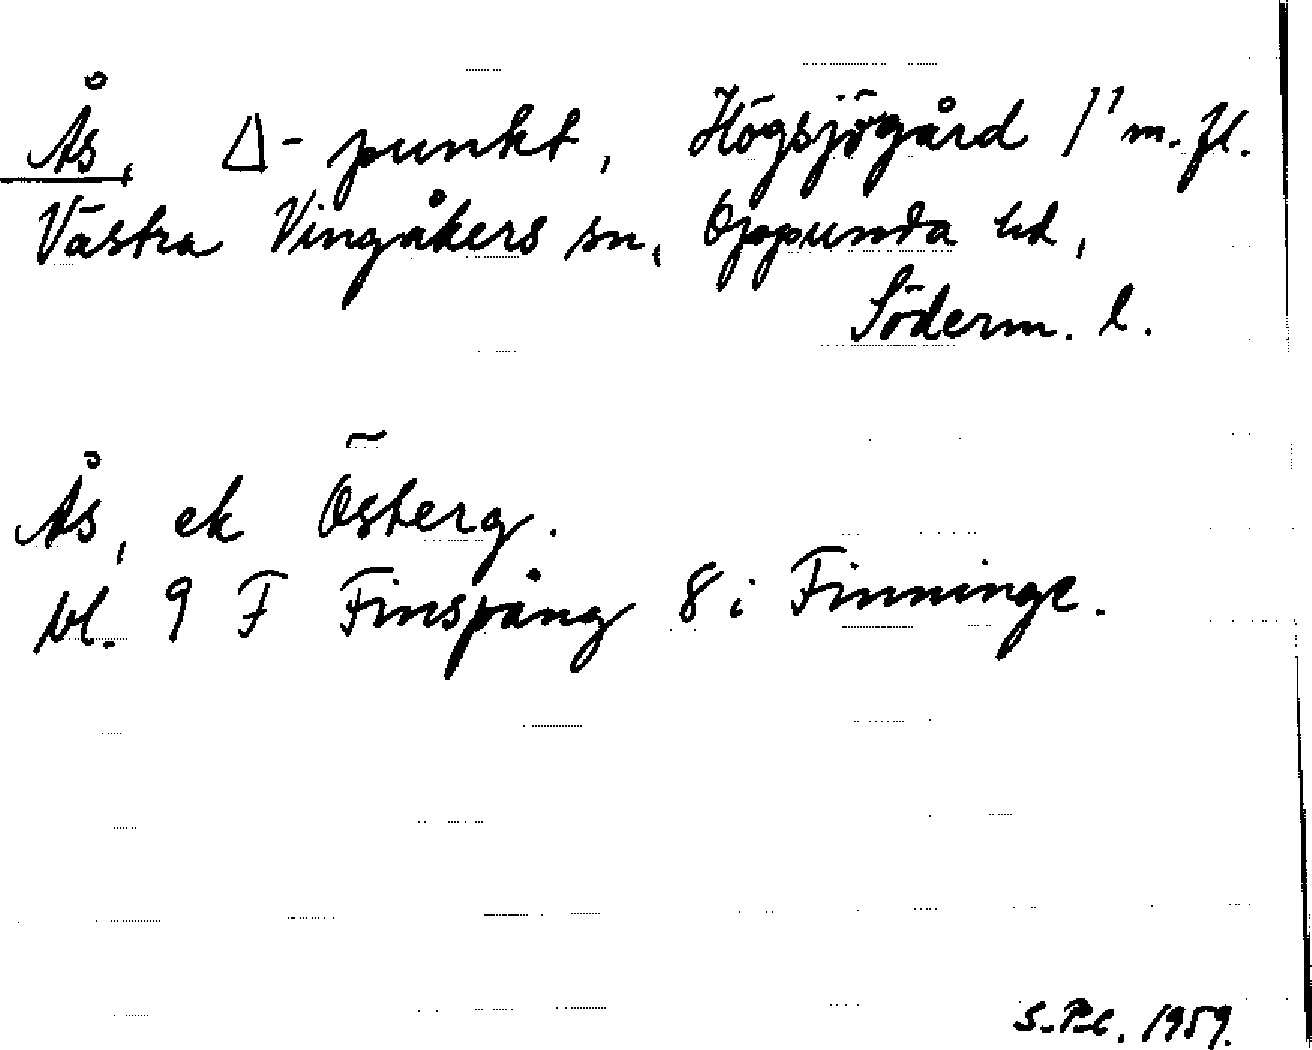 Ås, Δ-punkt, Högsjögård 1¹ m.fl.
Västra Vingåkers sn, Oppunda hd,
Söderm. l.
Ås, ek Österg.
bl. 9 F Finspång 8 i Finninge.
1959.